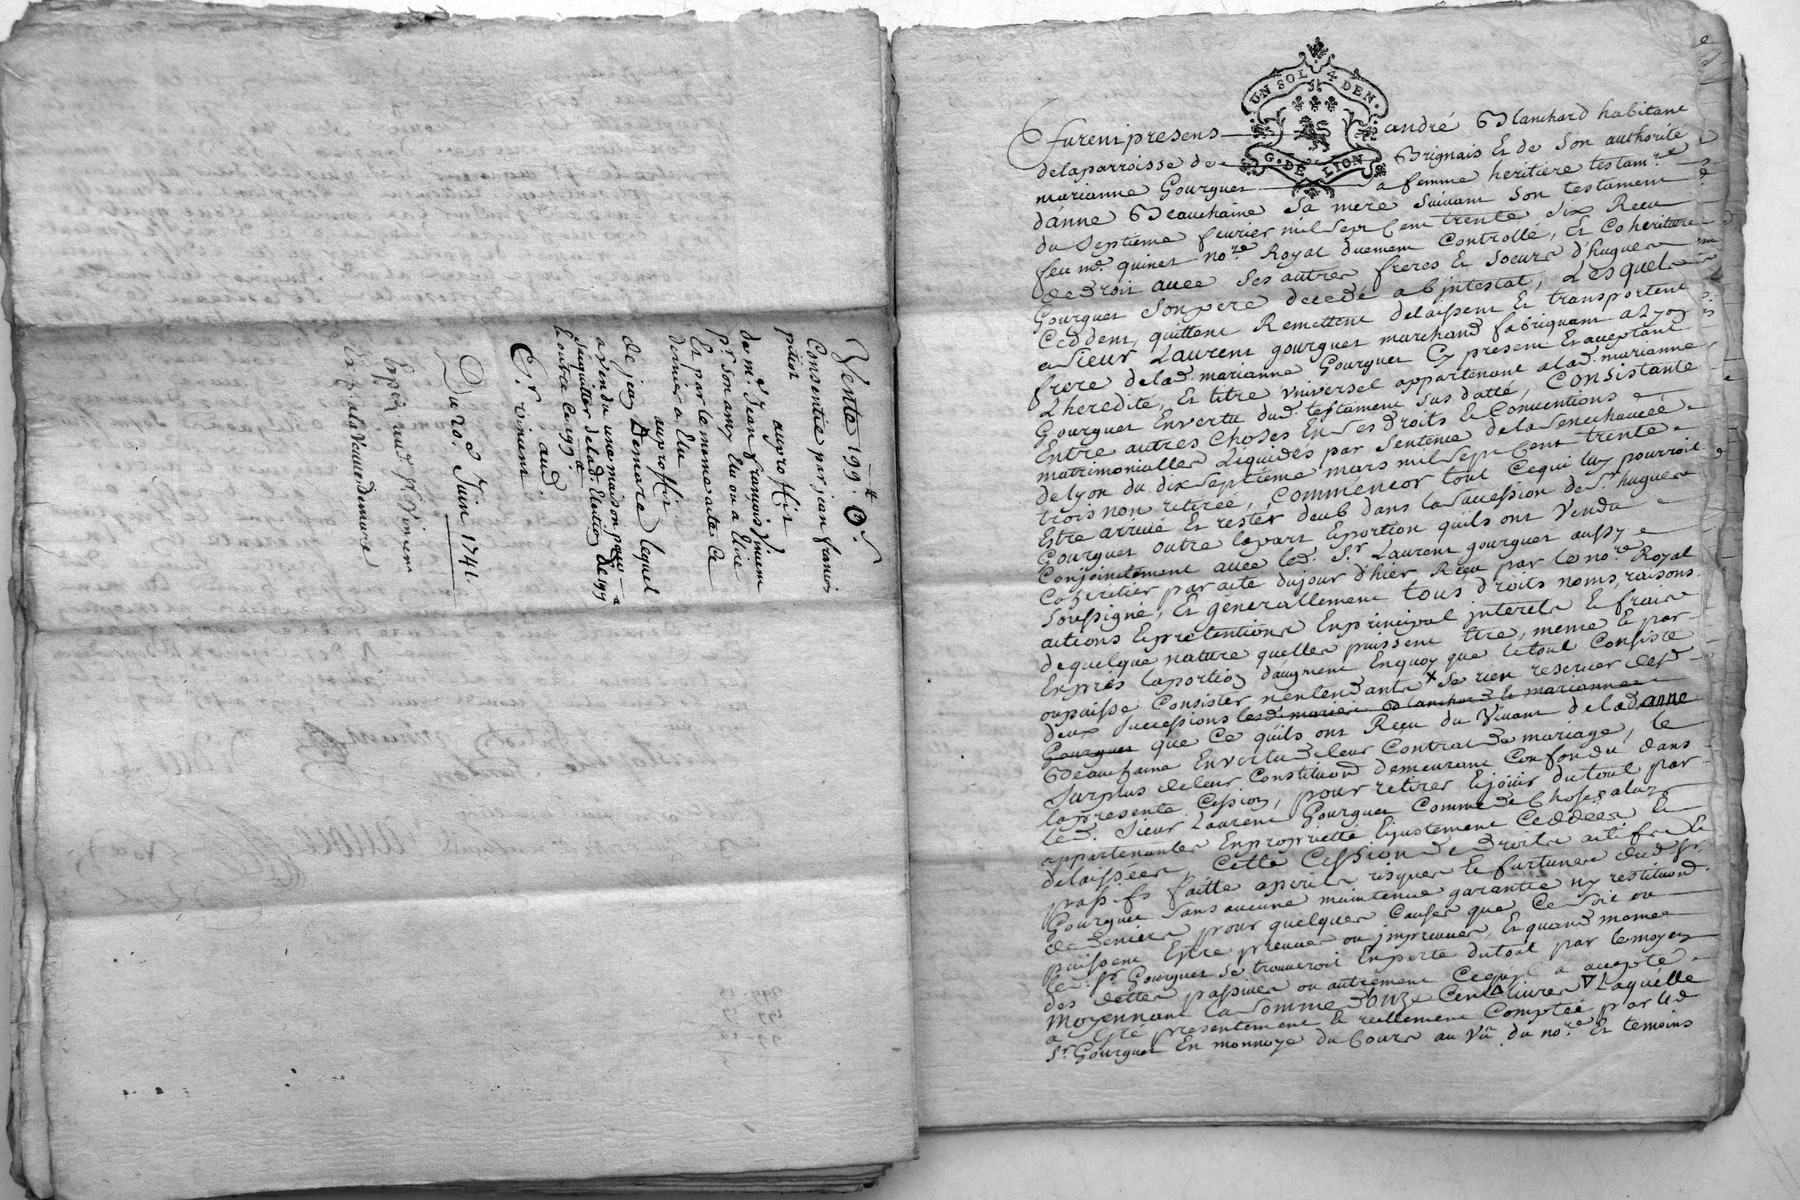 Vente 199.
Consentie par jean francois
pitiot
au profit
de me. Jean francois Jinien
pr. son amy Elu ou a Elire
Et par le meme acte Ce
dernier a Elu
au profit
de jean Demare lequel
a vendu une maison
sacquitter de lad. Election de 199
Du 20e. Juin 1741.
Exped.
a la Veuve demare
UN SOL 4 DEN.
G. DE LION
furent presens andré Blanchard habitant
delaparroisse de Brignais Et de Son authorité
marianne Gourguet a femme heritiere testamre.
d'anne Beauchaine Sa mere Suivant Son testament
du Septieme fevrier mil Sept Cent trente Six Receu
feu me. quinet nore. Royal duement Controllé, Et Coheritiere
de droit avec Ses autres freres Et Soeurs d'hugues
Gourguet Son pere decedé abjntestat, Lesquels
Ceddent, quittent Remettent delaissent Et transportent
a Sieur Laurent gourguet marchand fabriquant a Lyon
frere delad. marianne Gourguet Cy present Et acceptant
L'heredité, Et titre Vniversel appartenant alad. marianne
Gourguet En vertu dud. testament Sus datté, Consistante
Entre autres Choses En Ses droits Et Conventions
matrimonialles Liquidés par Sentence de la Senechaucée
de Lyon du dix Septième mars mil Sept Cent trente
trois non retirée, Commencor tout Cequi luy pourroit
Estre arrivé Et resté deub dans la Succession de Sr. hugues
Gourguet outre la part Eportion quils ont Vendu
Conjointement avec led. Sr. Laurent gourguet aussy
Coheritier par acte du jour d'hier Receu par le nore. Royal
Soussigné, Et generallement tous droits noms, raisons
actions Epretentions En principal jnterets Et frais
de quelque nature quelles puissent Etre, meme le par
Exprés la portion d'augment En quoy que le tout Consiste
ou puisse Consister n'entendants x Se rien reserver desd.
deux Successions les d. mariés Blanchard Et marianne
Gourguet que Ce quils ont Receu du Vivant de lad. anne
Beauchaine En vertu de leur Contrat de mariage, le
Surplus de leur Constituon. demeurant Confondu dans
la presente Cession, pour retirer Ejoüir du tout par
led. Sieur Laurent Gourguet Comme de Choses a luy
appartenantes En proprietté Ejustement Ceddées Et
delaissées, Cette Cession de droits actifs Et
passifs faitte a perils risques Et fortunes dud. Sr.
Gourguet Sans aucune maintenue garantie ny restituon.
de deniers pour quelques Causes que Ce Soit ou
puissent Estre prevües ou jmprevües, Et quand meme
le Sr. Gourguet Se trouveroit En perte du tout par le moyen
des dettes passives ou autrement Cequil a accepté
Moyennant la Somme D'onze Cent livres Laquelle
a Esté presentement Et reellement Comptée par led.
Sr. Gourguet En monnoye du Cours au Vû du nore. Et temoins